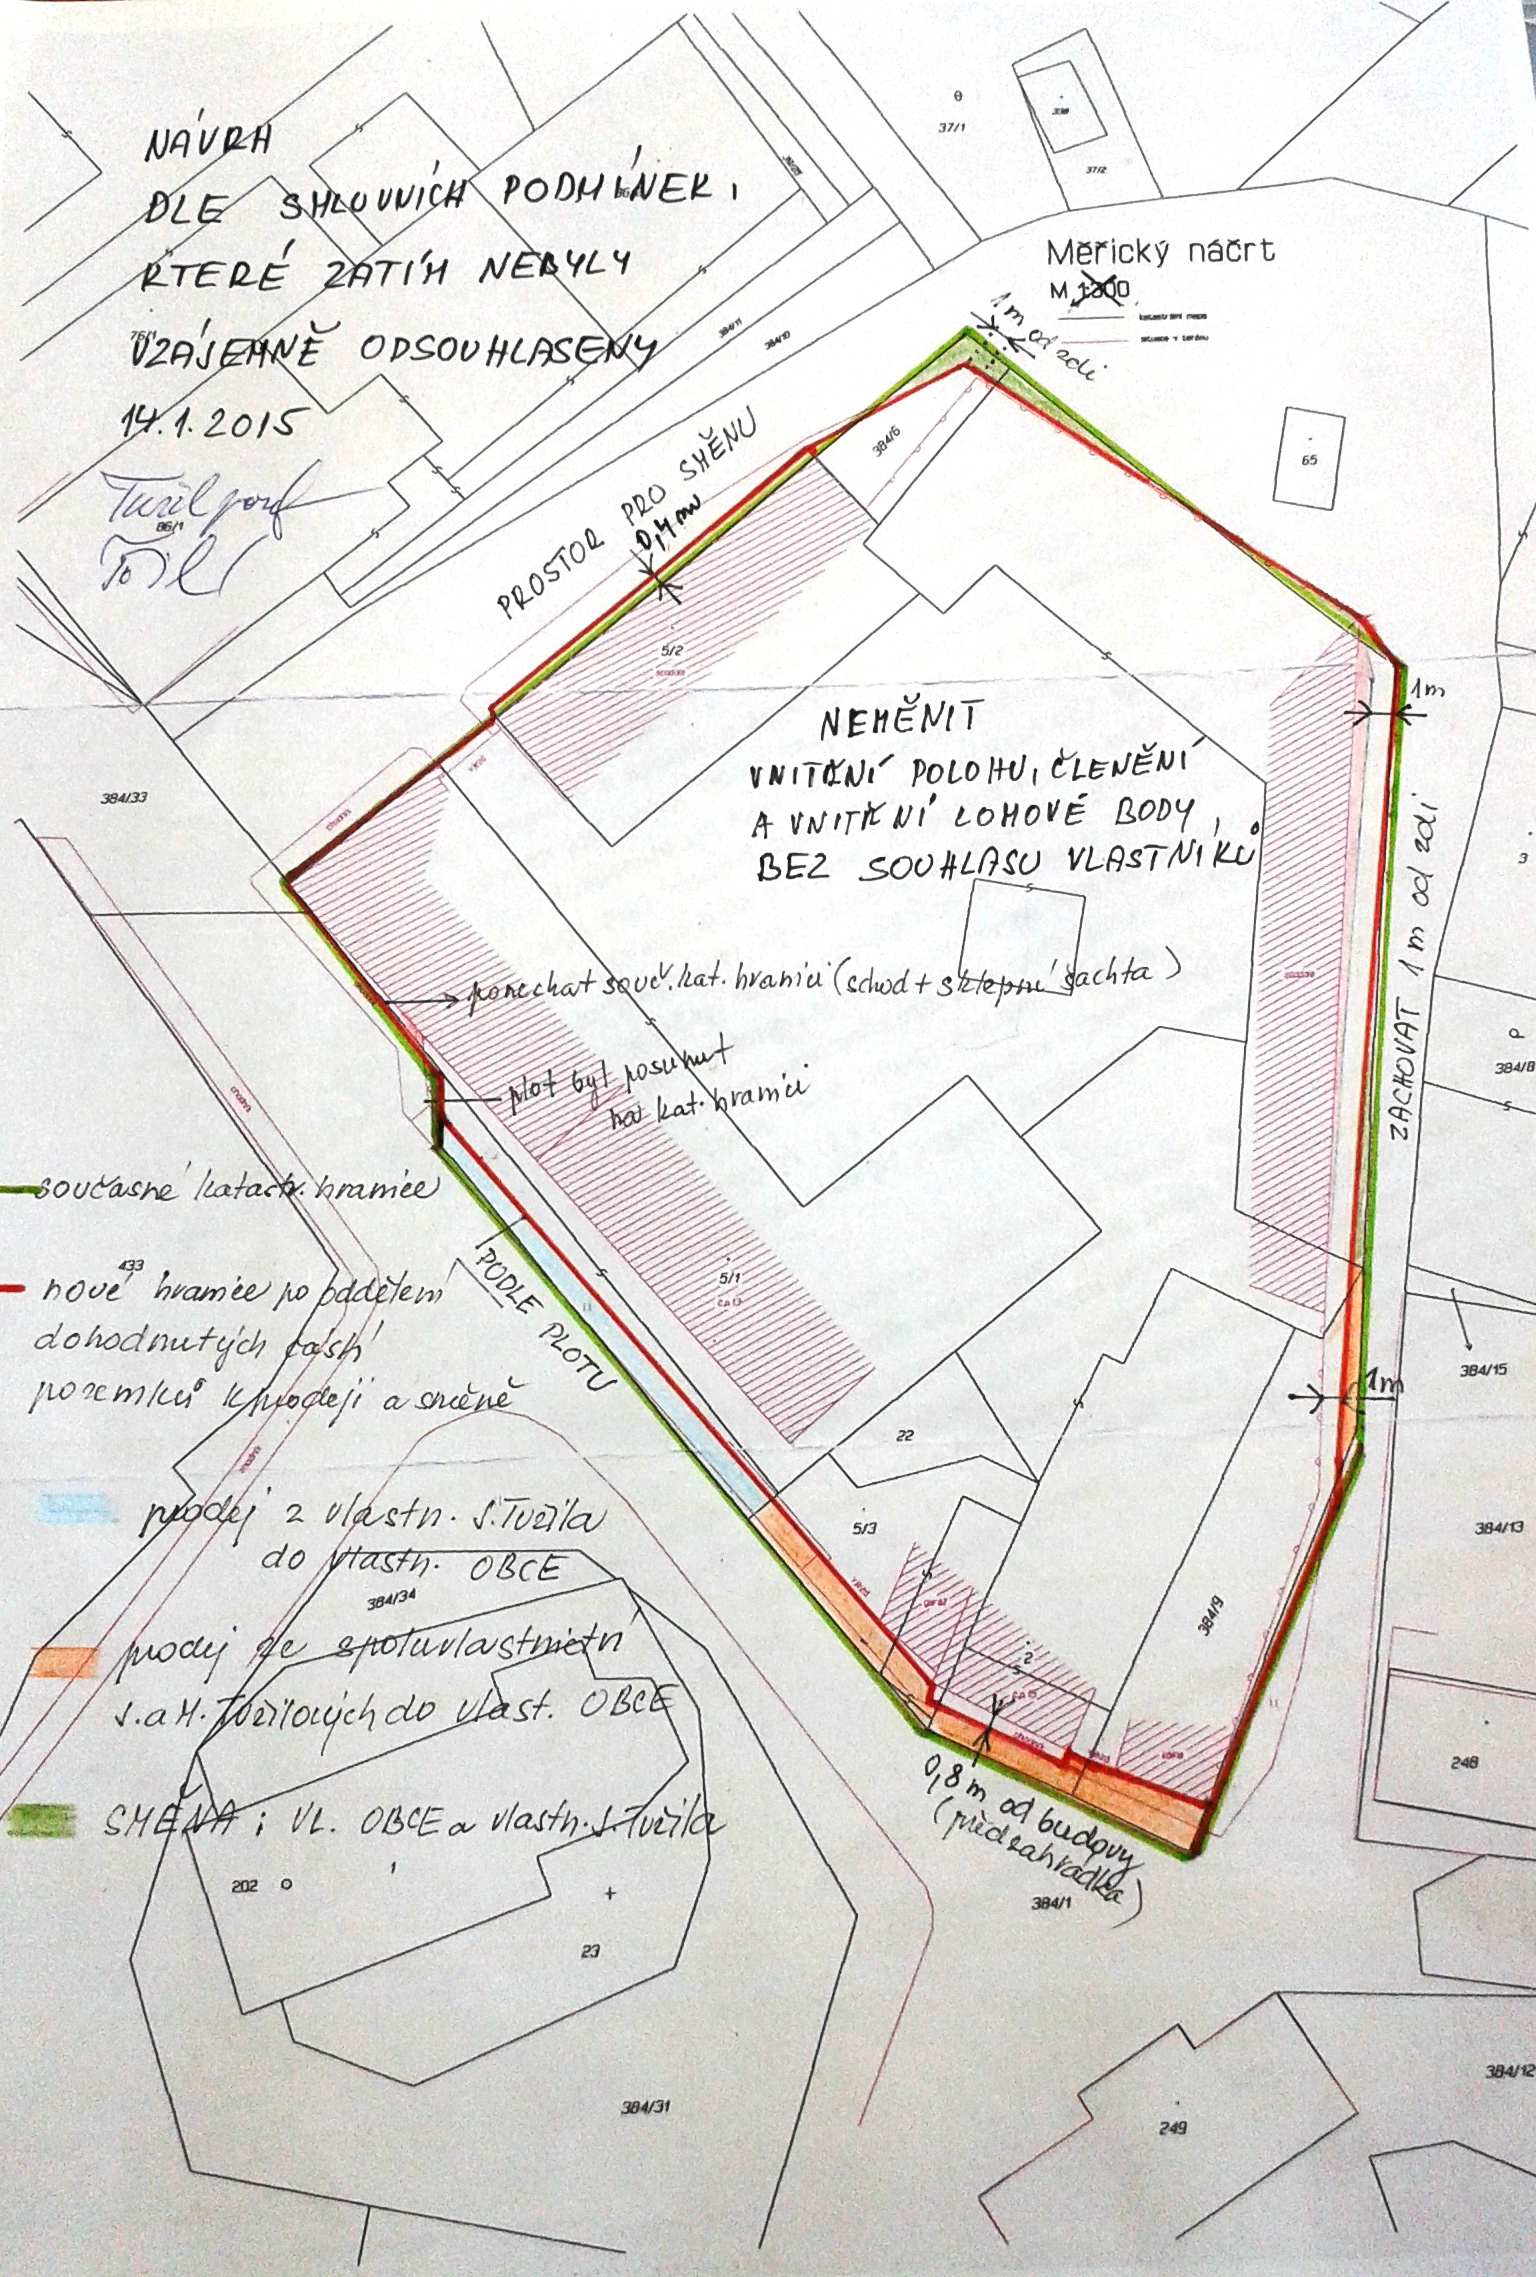 NÁVRH
DLE SMLUVNÍCH PODMÍNEK,
KTERÉ ZATÍM NEBYLY
VZÁJEMNĚ ODSOUHLASENY
14.1.2015
86/1
37/1
338
37/2
Měřický náčrt
M 1:500
katastrální mapa
situace v terénu
384/11
384/10
1m od zdi
65
384/6
PROSTOR PRO SMĚNU
0,4m
5/2
NEMĚNIT
VNITŘNÍ POLOHU, ČLENĚNÍ
A VNITŘNÍ LOMOVÉ BODY,
BEZ SOUHLASU VLASTNÍKŮ
1m
384/33
chodník
3
ZACHOVAT 1m od zdi
ponechat souč. kat. hranici (schod + sklepní šachta)
plot byl posunut
na kat. hranici
chodník
384/8
současné katastr. hranice
433
nové hranice po oddělení
dohodnutých částí
pozemků k prodeji a směně
PODLE PLOTU
5/1
č.p.13
384/15
1m
22
5/3
384/13
prodej z vlastn. J. Tužila
do vlastn. OBCE
384/34
vjezd
garáž
384/9
2
č.p.15
chodník
vjezd
kůlna
prodej ze spoluvlastnictví
J. a M. Tužilových do vlast. OBCE
248
0,8 m od budovy
(předzahrádka)
384/1
SMĚNA: VL. OBCE a vlastn. J. Tužila
202
23
384/31
249
384/12